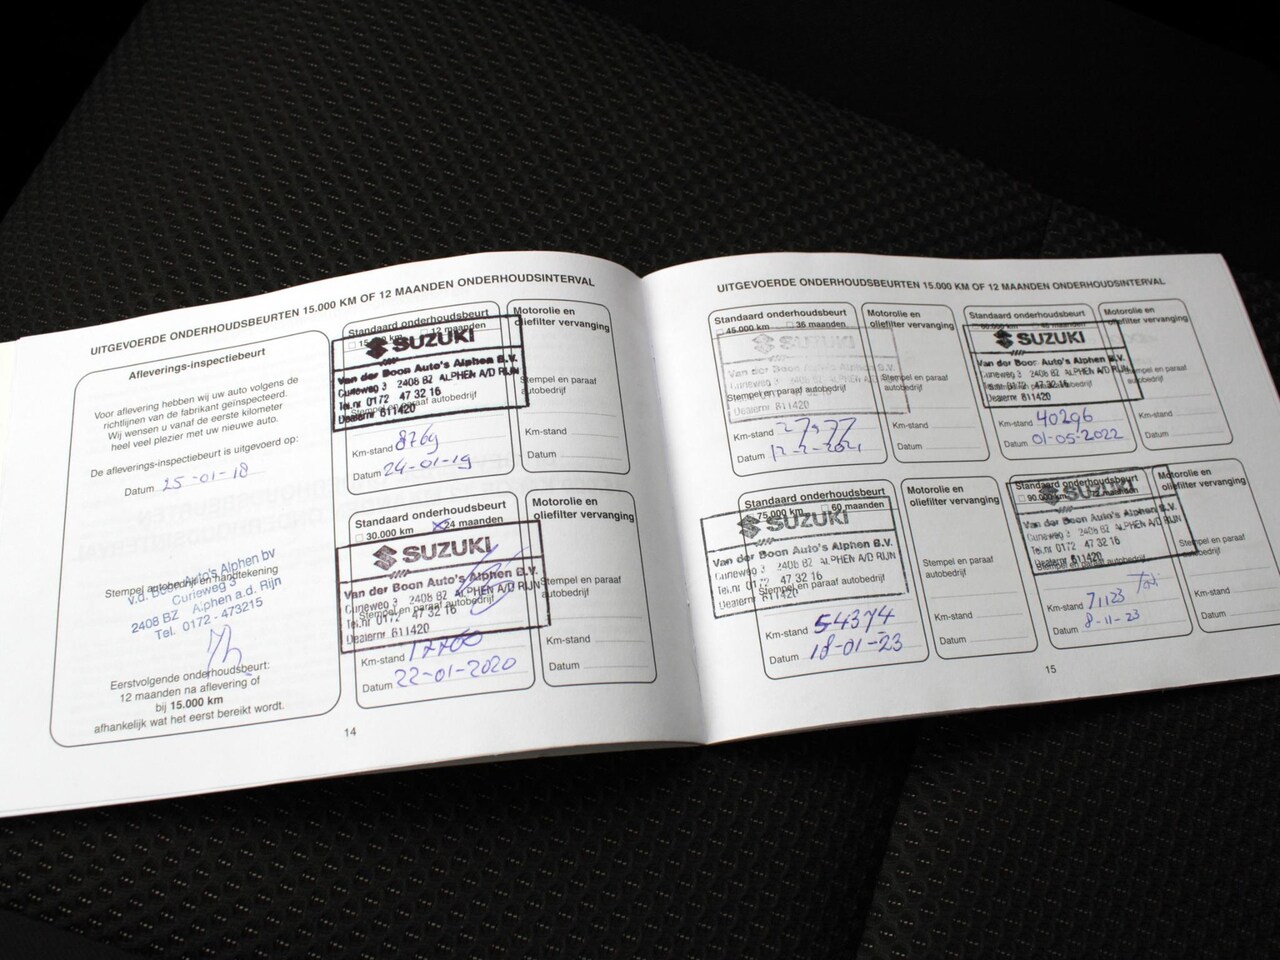 UITGEVOERDE ONDERHOUDSBEURTEN 15.000 KM OF 12 MAANDEN ONDERHOUDSINTERVAL
Afleverings-inspectiebeurt
Voor aflevering hebben wij uw auto volgens de
richtlijnen van de fabrikant geïnspecteerd.
Wij wensen u vanaf de eerste kilometer
heel veel plezier met uw nieuwe auto.
De afleverings-inspectiebeurt is uitgevoerd op:
Datum 25-01-18
Stempel autobedrijf en handtekening
v.d. Boon Auto's Alphen bv
Curieweg 3
2408 BZ Alphen a.d. Rijn
Tel. 0172 - 473215
Eerstvolgende onderhoudsbeurt:
12 maanden na aflevering of
bij 15.000 km
afhankelijk wat het eerst bereikt wordt.
Standaard onderhoudsbeurt
12 maanden
SUZUKI
Van der Boon Auto's Alphen B.V.
Curieweg 3 2408 BZ ALPHEN A/D RIJN
Tel.nr 0172 47 32 16
Stempel en paraaf autobedrijf
Dealernr 611420
Km-stand 8769
Datum 24-01-19
Motorolie en
oliefilter vervanging
Stempel en paraaf
autobedrijf
Km-stand
Datum
Standaard onderhoudsbeurt
30.000 km x 24 maanden
SUZUKI
Van der Boon Auto's Alphen B.V.
Curieweg 3 2408 BZ ALPHEN A/D RIJN
Stempel en paraaf autobedrijf
Tel.nr 0172 47 32 16
Dealernr 611420
Km-stand
Datum 22-01-2020
Motorolie en
oliefilter vervanging
Stempel en paraaf
autobedrijf
Km-stand
Datum
14
UITGEVOERDE ONDERHOUDSBEURTEN 15.000 KM OF 12 MAANDEN ONDERHOUDSINTERVAL
Standaard onderhoudsbeurt
45.000 km 36 maanden
SUZUKI
Van der Boon Auto's Alphen B.V.
Stempel en paraaf autobedrijf
Dealernr 611420
Km-stand
Datum
Motorolie en
oliefilter vervanging
Stempel en paraaf
autobedrijf
Km-stand
Datum
Standaard onderhoudsbeurt
SUZUKI
Van der Boon Auto's Alphen B.V.
Curieweg 3 2408 BZ ALPHEN A/D RIJN
Tel.nr 0172 47 32 16
Stempel en paraaf autobedrijf
Dealernr 611420
Km-stand 40296
Datum 01-05-2022
Motorolie en
oliefilter vervanging
Stempel en paraaf
autobedrijf
Km-stand
Datum
Standaard onderhoudsbeurt
75.000 km 60 maanden
SUZUKI
Van der Boon Auto's Alphen B.V.
Curieweg 3 2408 BZ ALPHEN A/D RIJN
Tel.nr 0172 47 32 16
Stempel en paraaf autobedrijf
Dealernr 611420
Km-stand 54374
Datum 18-01-23
Motorolie en
oliefilter vervanging
Stempel en paraaf
autobedrijf
Km-stand
Datum
Standaard onderhoudsbeurt
90.000 km
SUZUKI
Van der Boon Auto's Alphen B.V.
Curieweg 3 2408 BZ ALPHEN A/D RIJN
Tel.nr 0172 47 32 16
Dealernr 611420
Stempel en paraaf autobedrijf
Km-stand 71123
Datum 8-11-23
Motorolie en
oliefilter vervanging
Stempel en paraaf
autobedrijf
Km-stand
Datum
15